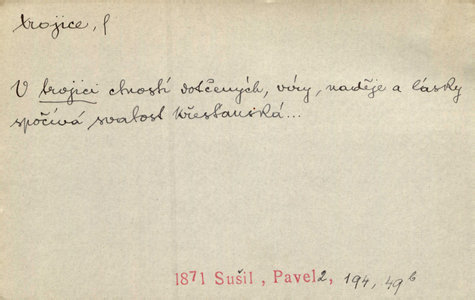 trojice, f
V trojici ctností dotčených, víry, naděje a lásky
spočívá svatost křesťanská...
1871 Sušil, Pavel 2, 194, 49b